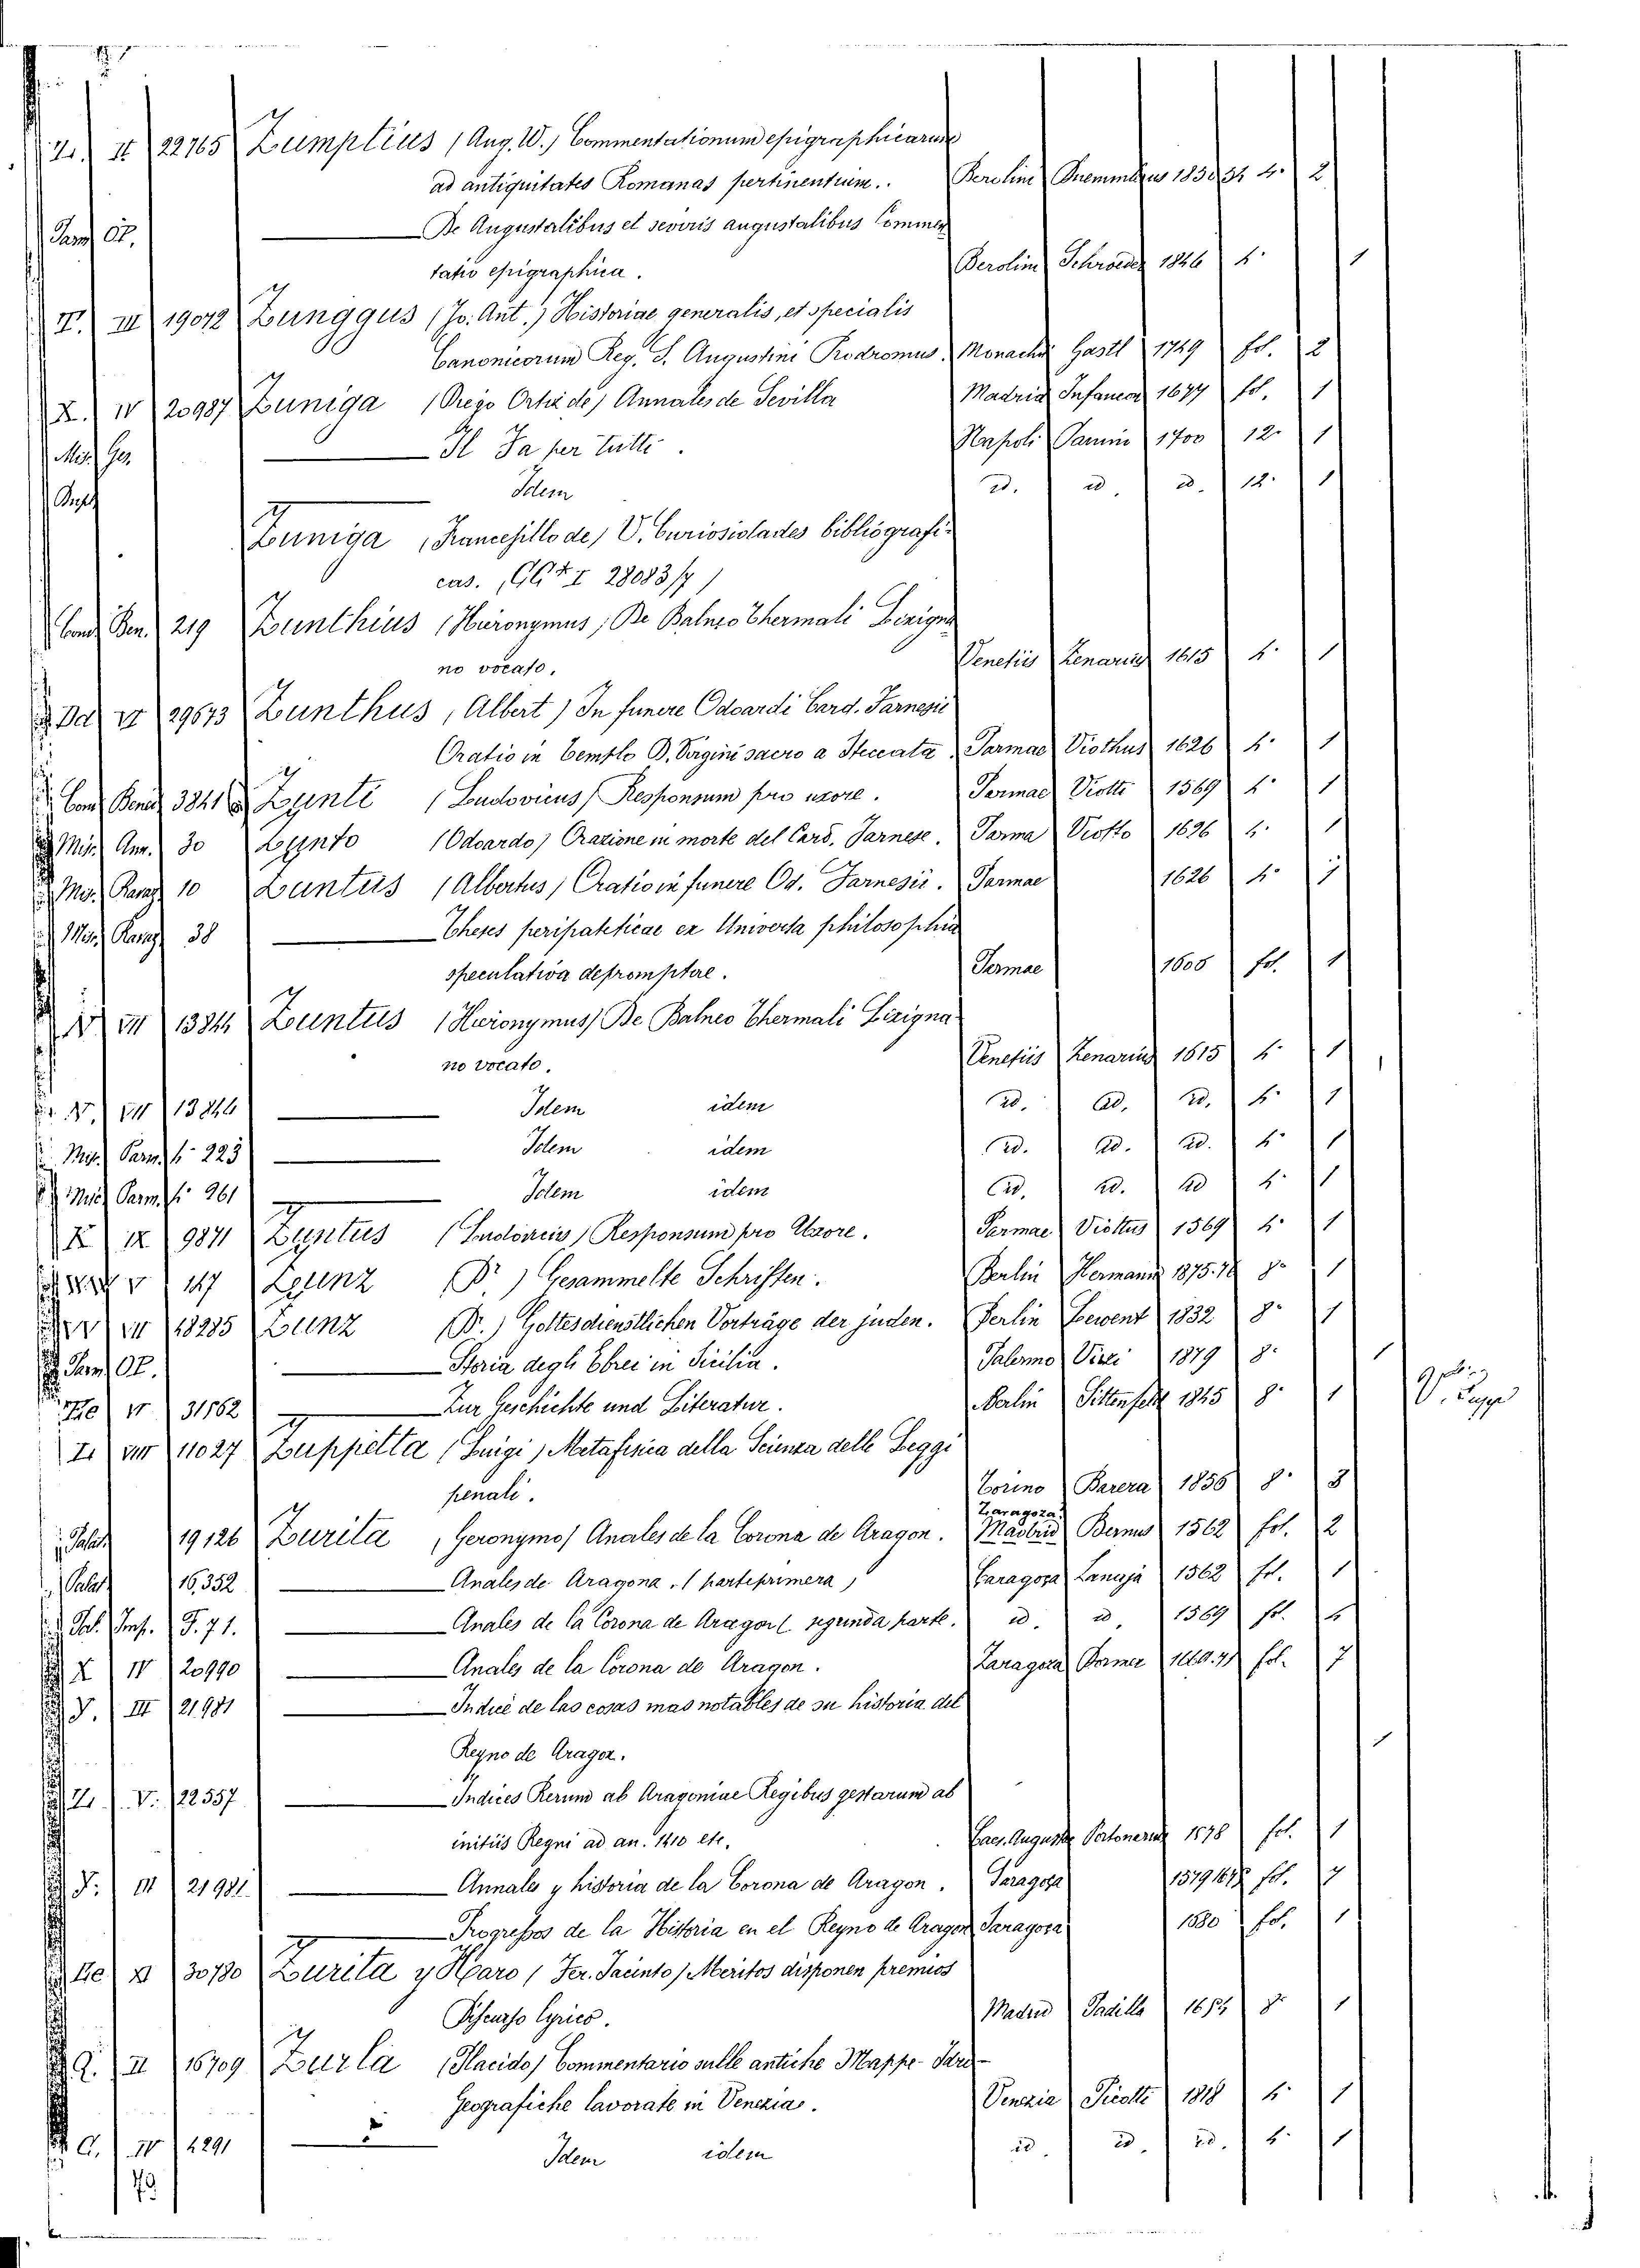 Z. II 22765 Zumptius (Aug. W.) Commentationum epigraphicarum
ad antiquitates Romanas pertinentium. Berolini 4. 2
De Augustalibus et seviris augustalibus Commen
tatio epigraphica. Berolini Schroeder 1846 4. 1
T. III 19072 Zunggus (Jo. Ant.) Historiae generalis, et specialis
Canonicorum Reg. S. Augustini Prodromus. Monachii Gastl 1749 fol. 2
X. IV 20987 Zuniga (Diego Ortiz de) Annales de Sevilla Madrid Infancon 1677 fol. 1
Il Fa per tutti. Napoli 1700 12. 1
Idem id. id. id. 12. 1
Zuniga (Francesillo de) V. Curiosidades bibliografi-
cas. (GG* I 28083/7)
Ben. 219 Zunthius (Hieronymus) De Balneo Thermali Lizigna
no vocato. Venetiis Zenarius 1615 4. 1
Dd VI 29673 Zunthus (Albert) In funere Odoardi Card. Farnesii
Oratio in templo B. Virgini sacro a Steccata. Parmae Viothus 1626 4. 1
3821 Zunti (Ludovicus) Responsum pro uxore. Parmae Viotti 1569 4. 1
Mis. Ann. 30 Zunto (Odoardo) Orazione in morte del Card. Farnese. Parma Viotto 1626 4. 1
Mis. 10 Zuntus (Albertus) Oratio in funere Od. Farnesii. Parmae 1626 4. 1
Mis. 38 Theses peripateticae ex Universa philosophia
speculativa depromptae. Parmae fol. 1
N. VII 13844 Zuntus (Hieronymus) De Balneo Thermali Lizigna
no vocato. Venetiis Zenarius 1615 4. 1
N. VII 13846 Idem idem id. id. id. 4. 1
Mis. Parm. 4. 223 Idem idem id. id. id. 4. 1
Mis. Parm. 4. 261 Idem idem id. id. id. 4. 1
K IX 9871 Zuntus (Ludovicus) Responsum pro Uxore. Parmae Viottus 1569 4. 1
V 147 Zunz (Dr.) Gesammelte Schriften. Berlin Hermann 1875.76 8. 1
VII 18285 Zunz (Dr.) Gottesdienstlichen Vorträge der juden. Berlin 1832 8. 1
Storia degli Ebrei in Sicilia. Palermo Virzi 1879 8. 1
VI 31562 Zur Geschichte und Literatur. Berlin Sittenfeld 1845 8. 1
I. VIII 11027 Zuppetta (Luigi) Metafisica della Scienza delle Leggi
penali. Torino Barera 1856 8. 3
Zaragoza
Palat. 19126 Zurita (Geronymo) Anales de la Corona de Aragon. Madrid 1562 fol. 2
Palat. 16,352 Anales de Aragona. (parte primera) Caragoza Lanaja 1562 fol. 1
Pal. Imp. F. 71. Anales de la Corona de Aragon (segunda parte. id. id. 1569 fol.
X IV 20990 Anales de la Corona de Aragon. Zaragoza Dormer fol. 7
III 21981 Indice de las cosas mas notables de su historia del
Reyno de Aragon.
Z. V. 22557 Indices Rerum ab Aragoniae Regibus gestarum ab
initiis Regni ad an. 1410 etc. Caes. Augustae 1578 fol. 1
III 21981 Annales y historia de la Corona de Aragon. Saragoza fol. 7
Progressos de la Historia en el Reyno de Aragon Saragoza 1680 fol. 1
30780 Zurita y Haro (Fer. Jacinto) Meritos disponen premios
Discurso lyrico. Madrid Padilla 1654 8. 1
Q. II 16709 Zurla (Placido) Commentario sulle antiche Mappe-
Geografiche lavorate in Venezia. Venezia Picotti 1818 4. 1
Q. IV 4291 Idem idem id. id. id. 4. 1